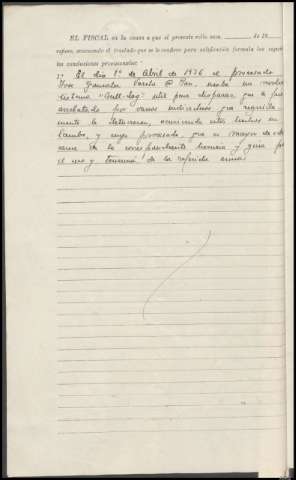 EL FISCAL en la causa a que el presente rollo se refiere, de 19
refiere, evacuando el traslado que se le confiere para calificación formula las siguien
tes conclusiones provisionales:
1ª El día 1º de Abril de 1936 el procesado
Jose Gonzalez @ usaba un revolver
sistema "Bull-dog" útil para disparar, que le fué
arrebatado por varios individuos, que
mente la ocurriendo estos hechos en
Cambre, y cuyo procesado, que es mayor de edad
carece de la correspondiente licencia y guia para
el uso y tenencia de la referida arma